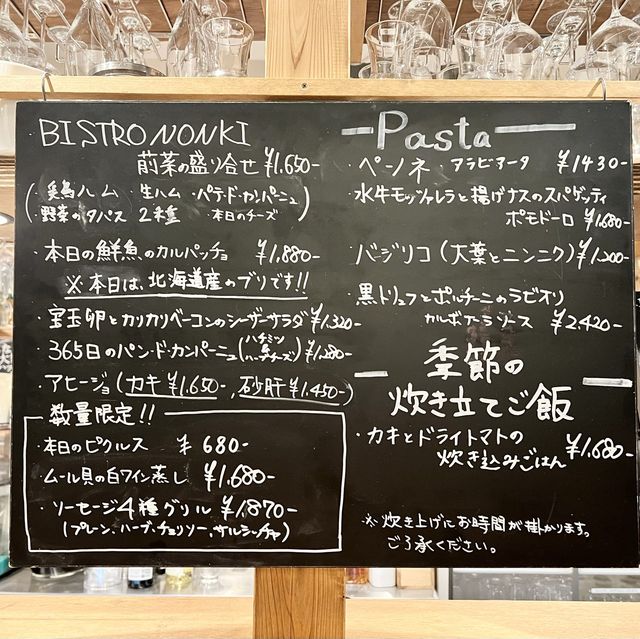 BISTRO NONKI
前菜の盛り合せ ¥1,650-
(鶏ハム ・生ハム ・パテ・ド・カンパーニュ
・野菜のタパス 2種 ・本日のチーズ)
・本日の鮮魚のカルパッチョ ¥1,880-
※本日は、北海道産のブリです!!
・宝玉卵とカリカリベーコンのシーザーサラダ ¥1,320-
・365日のパン・ド・カンパーニュ(ハチミツ ハーブチーズ) ¥1,280-
・アヒージョ(カキ ¥1,650-, 砂肝 ¥1,450-)
数量限定!!
・本日のピクルス ¥680-
・ムール貝の白ワイン蒸し ¥1,680-
・ソーセージ4種グリル ¥1,870-
(プレーン、ハーブ、チョリソー、サルシッチャ)
Pasta
・ペンネ・アラビアータ ¥1430-
・水牛モッツァレラと揚げナスのスパゲッティ
ポモドーロ ¥1,680-
・バジリコ(大葉とニンニク) ¥1,200-
・黒トリュフとポルチーニのラビオリ
カルボナーラソース ¥2,420-
季節の
炊き立てご飯
・カキとドライトマトの
炊き込みごはん ¥1,680-
※炊き上げにお時間が掛かります。
ご了承ください。